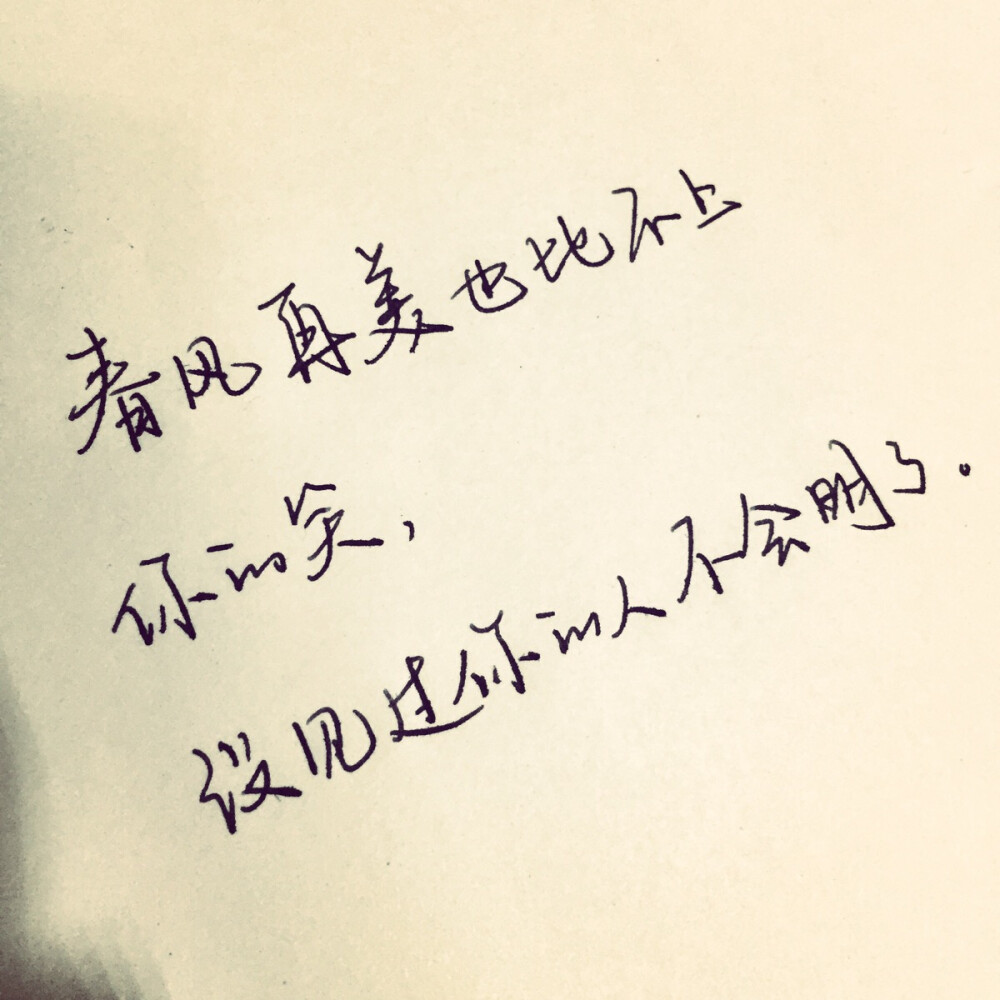 春风再美也比不上
你的笑，
没见过你的人不会明了。